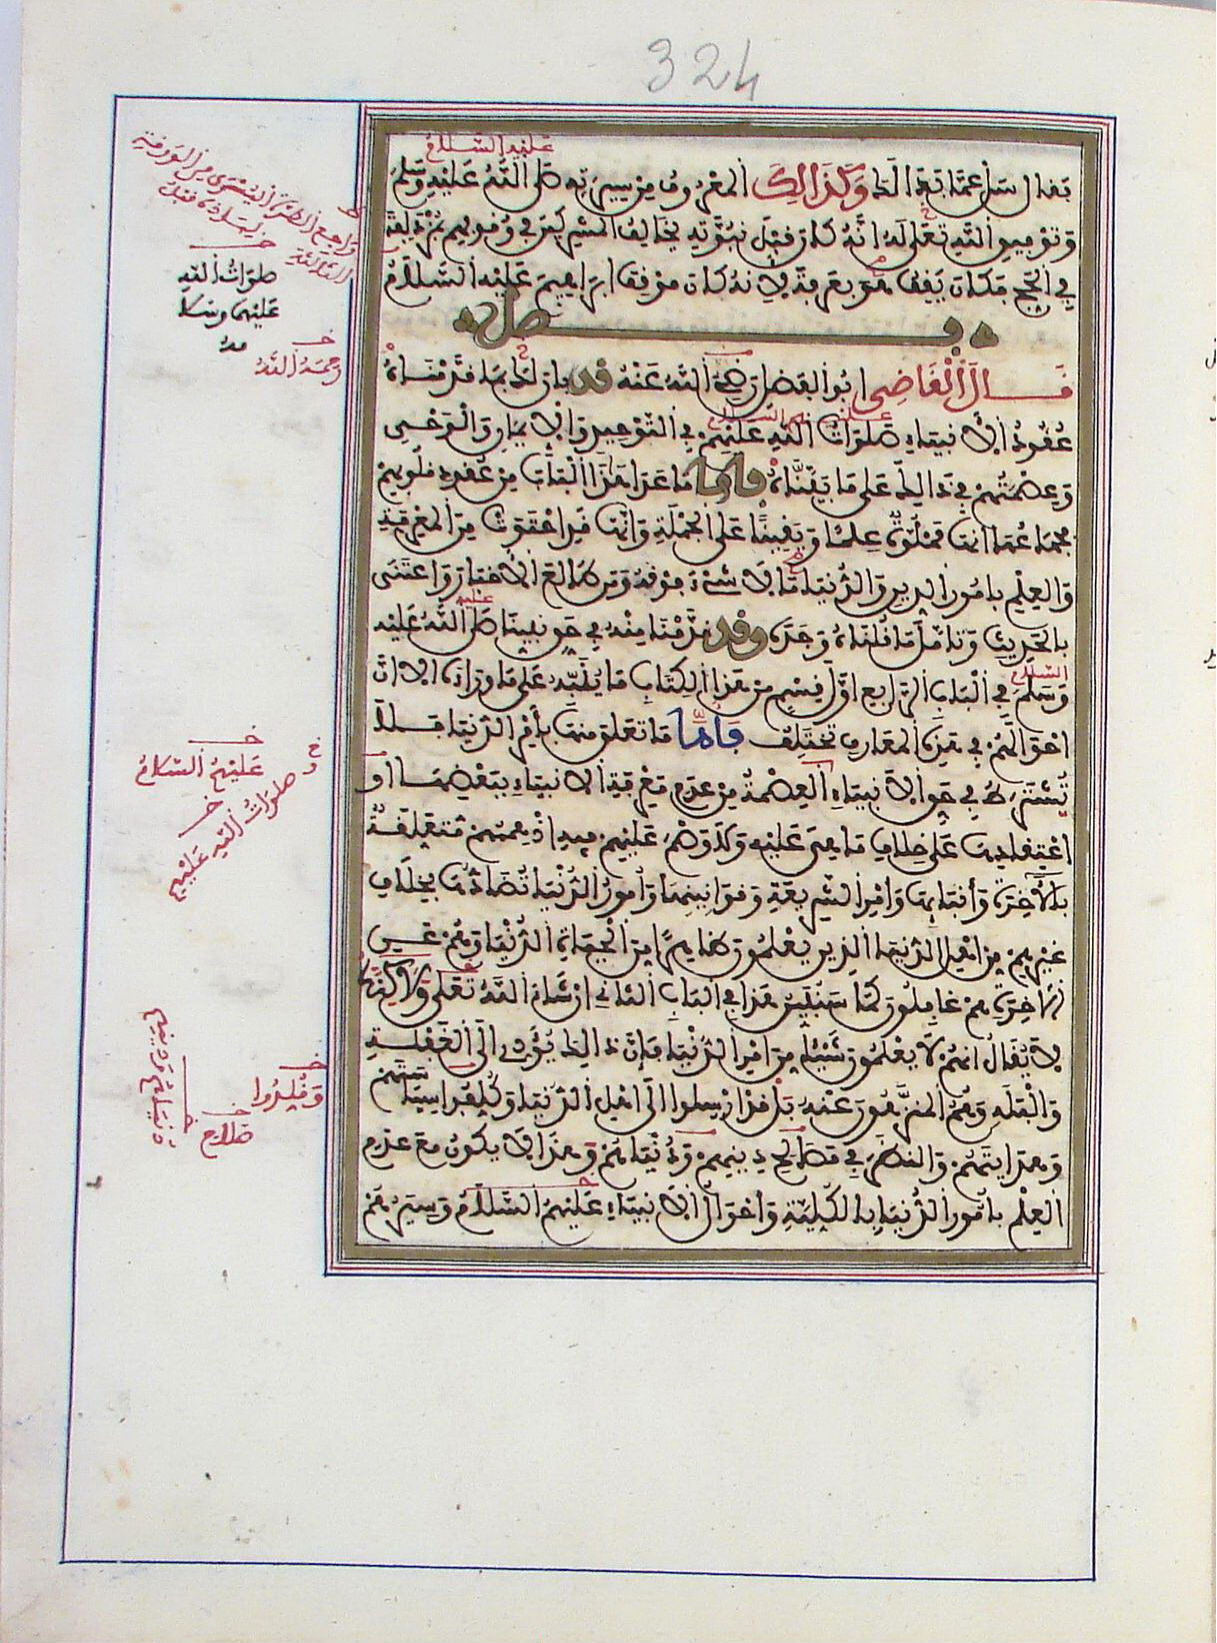 324
عليه السلام
فقال سل عما بدا لك وكذالك المعروف من سيرته صلى الله عليه وسلم
وتوفيق الله تعلى له انه كان قبل نبوته يخالف المشركين في وقوفهم بمزدلفة
في الحج فكان يقف هو بعرفة لانه كان موقف ابراهيم عليه السلام
فصل
قال القاضي ابو الفضل رضي الله عنه قد بان لك بما قدمناه
عقود الانبياء صلوات الله عليهم في التوحيد والايمان والوحي
وعصمتهم في ذالك على ما بيناه فاما ما عدا هذا الباب من عقود قلوبهم
فجماعها انها مملوة علما ويقينا على الجملة وانها قد احتوت من المعرفة
والعلم بامور الدين والدنيا ما لا شيء فوقه ومن طالع الاخبار واعتنى
بالحديث وتامل ما قلناه وجده وقد قدمنا منه في حق نبينا صلى الله عليه
وسلم في الباب الرابع اول قسم من هذا الكتاب ما ينبه على ما وراءه الا ان
احوالهم في هذه المعارف تختلف فاما ما تعلق منها بامر الدنيا فلا
تشترط في حق الانبياء العصمة من عدم معرفة الانبياء ببعضها او
اعتقادها على خلاف ما هي عليه ولا وصم عليهم فيه اذ هممهم متعلقة
بالاخرة وأنبائها وامر الشريعة وقوانينها وامور الدنيا تضادها بخلاف
غيرهم من اهل الدنيا الذين يعلمون ظاهرا من الحياة الدنيا وهم عن
الاخرة هم غافلون كما سنبين هذا في الباب الثاني ان شاء الله تعلى ولاكنه
لا يقال انهم لا يعلمون شيئا من امر الدنيا فإن ذالك يؤدي الى الغفلة
والبله وهم المنزهون عنه بل قد ارسلوا الى اهل الدنيا وكلفوا سياستهم
وهدايتهم والنظر في مصالح دينهم ودنياهم وهذا لا يكون مع عدم
العلم بامور الدنيا بالكلية واحوال الانبياء عليهم السلام وسيرهم
صلوات الله
عليهم وسلا
مه
رحمه الله
عليهم السلام
صلوات الله عليهم
وقلدوا
صلاح
دنياهم ودينهم